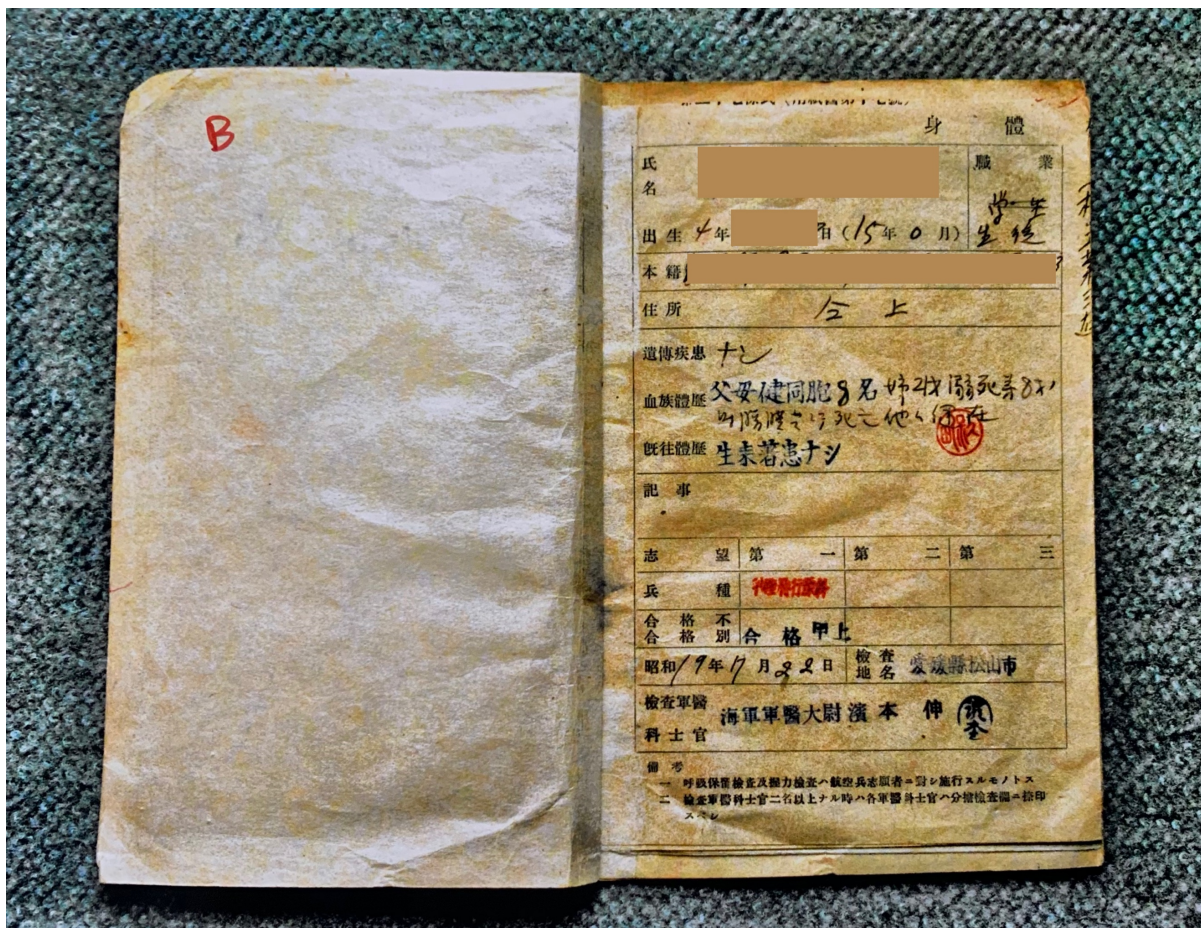 B
身 體
氏名
職業
学生
生徒
出生 4年 日(15年0月)
本籍
住所 仝上
遺傳疾患 ナシ
血族體歷 父母健同胞8名 姉2才溺死弟8才
死亡他ハ健在
既往體歷 生来著患ナシ
記事
志望 第一 第二 第三
兵種
合格不合格別 合格 甲上
昭和19年11月22日 檢查地名 愛媛縣松山市
檢查軍醫科士官 海軍軍醫大尉 濱本 伸 濱本
備考
一 呼吸保留檢查及握力檢查ハ航空兵志願者ニ對シ施行スルモノトス
二 檢查軍醫科士官二名以上ナル時ハ各軍醫科士官ハ分擔檢查欄ニ捺印
スベシ